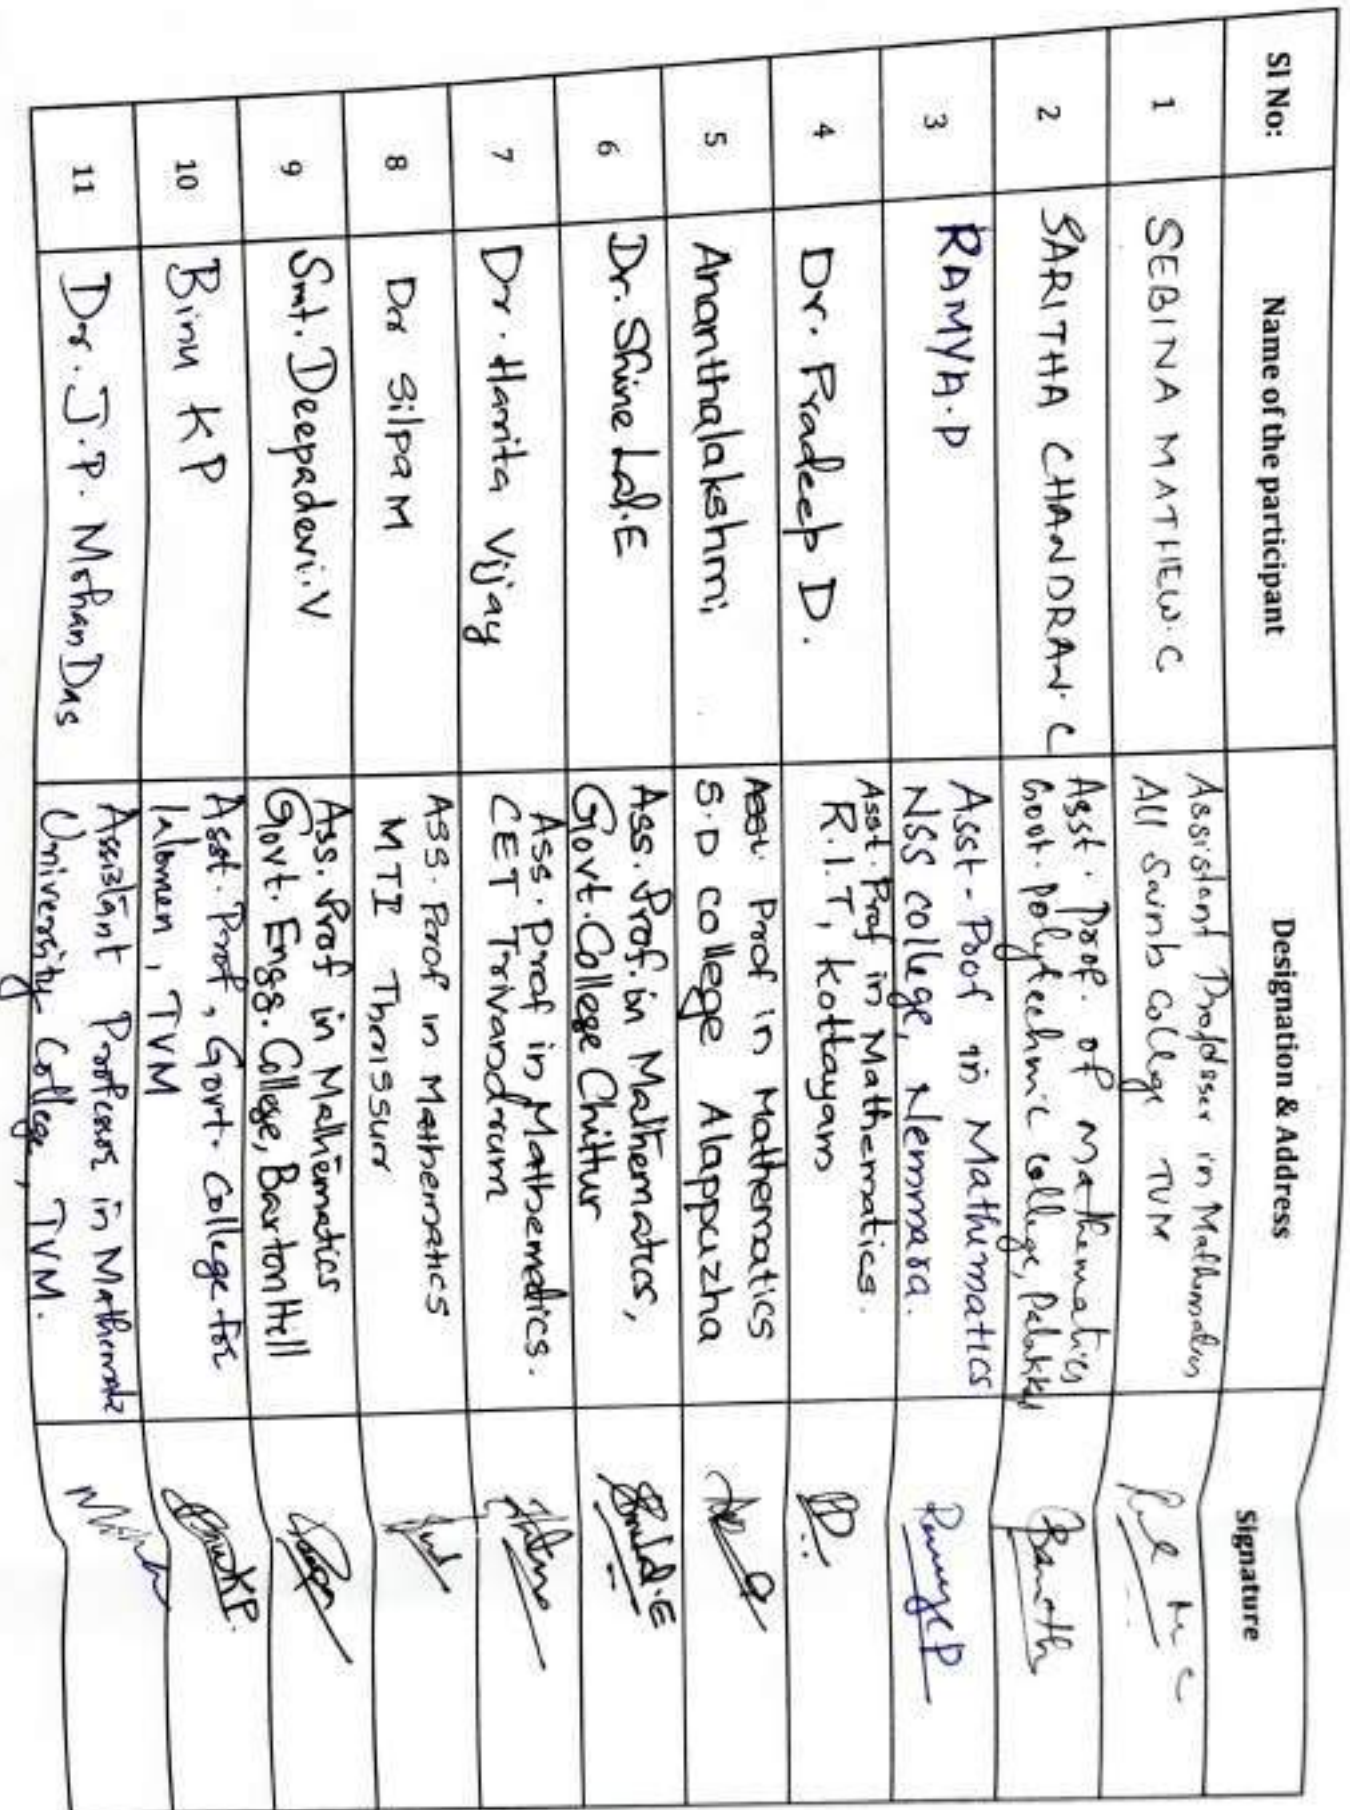 Sl No: Name of the participant Designation & Address Signature
1 SEBINA MATHEW.C Assistant Professer in Mathematics
All Saints College TVM
2 SARITHA CHANDRAN.C Asst. Prof. of Mathematics
Govt. Polytechnic College, Palakkad
3 RAMYA.P Asst-Prof in Mathematics RamyaP
NSS college, Nemmara.
4 Dr. Pradeep D. Asst. Prof in Mathematics.
R.I.T, Kottayam
5 Ananthalakshmi Asst. Prof in Mathematics
S.D college Alappuzha
6 Dr. Shine Lal.E Ass. Prof. in Mathematics,
Govt. College Chittur
7 Dr. Harrita Vijay Ass. Prof in Mathematics.
CET Trivandrum
8 Dr Silpa M Ass. Prof in Mathematics
MTI Thrissur
9 Smt. Deepadevi.V Ass. Prof in Mathematics
Govt. Engg. College, Barton Hill
10 Binu KP Asst. Prof, Govt. College for BinuKP.
, TVM
11 Dr. J.P. Mohan Das Assistant Professor in
University College, TVM.